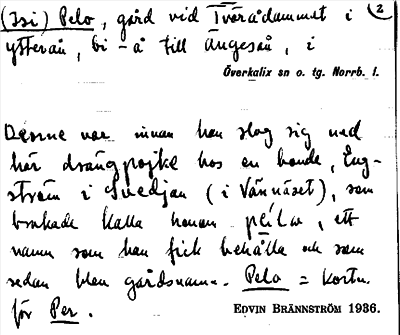 (Isi) Pelo, gård vid Tvärådammet i 2
ytterån, bi-å till Ängesån, i
Överkalix sn o. tg. Norrb. l.
Denne var innan han slog sig ned
här drängpojke hos en bonde, Eng-
ström i Svedjan (i Vännäset), som
brukade kalla honom , ett
namn som han fick behålla och som
sedan blev gårdsnamn. Pelo = kortn.
för Per.
EDVIN BRÄNNSTRÖM 1936.